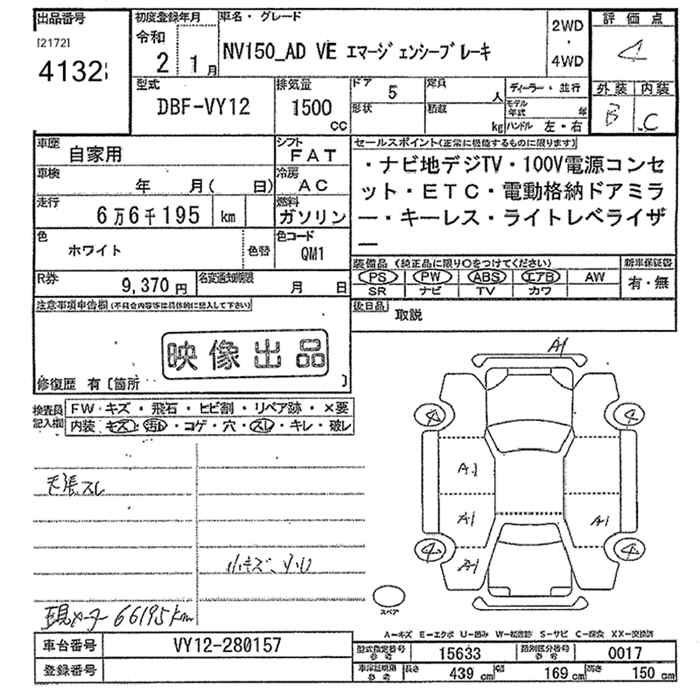 出品番号
[2172]
4132
初度登録年月
令和
2 1月
車名・グレード
NV150_AD VE エマージェンシーブレーキ
2WD
・
4WD
評価点
4
外装 内装
B C
型式
DBF-VY12
排気量
1500
CC
ドア
5
定員
人
形状
積載
kg
ディーラー・並行
モデル年式 年
ハンドル 左・右
車歴
自家用
シフト
FAT
車検
年 月( 日)
冷房
AC
走行
6万6千195 km
燃料
ガソリン
色
ホワイト
色替
色コード
QM1
R券
9,370円
名変通知期限
月 日
セールスポイント(正常に機能するものに限ります)
・ナビ地デジTV・100V電源コンセ
ット・ETC・電動格納ドアミラ
ー・キーレス・ライトレベライザ
ー
装備品 (純正品に限り○をつけてください)
PS PW ABS エアB AW
SR ナビ TV カワ
新車保証書
有・無
後日品
取説
注意事項申告欄 (不具合内容等は具体的に記入して下さい)
映像出品
修復歴 有〔箇所 〕
検査員記入欄
FW・キズ・飛石・ヒビ割・リペア跡・×要
内装・キズ・汚れ・コゲ・穴・スレ・キレ・破レ
天張スレ
小キズ、小凹
現メーター 66195km
A1
A1
A1
A1
A1
スペア
A-キズ E-エクボ U-凹み W-補修跡 S-サビ C-腐食 XX-交換済
車台番号
VY12-280157
登録番号
型式指定番号 参考
15633
類別区分番号 参考
0017
車庫証明用 参考
長さ
439 cm
幅
169 cm
高さ
150 cm